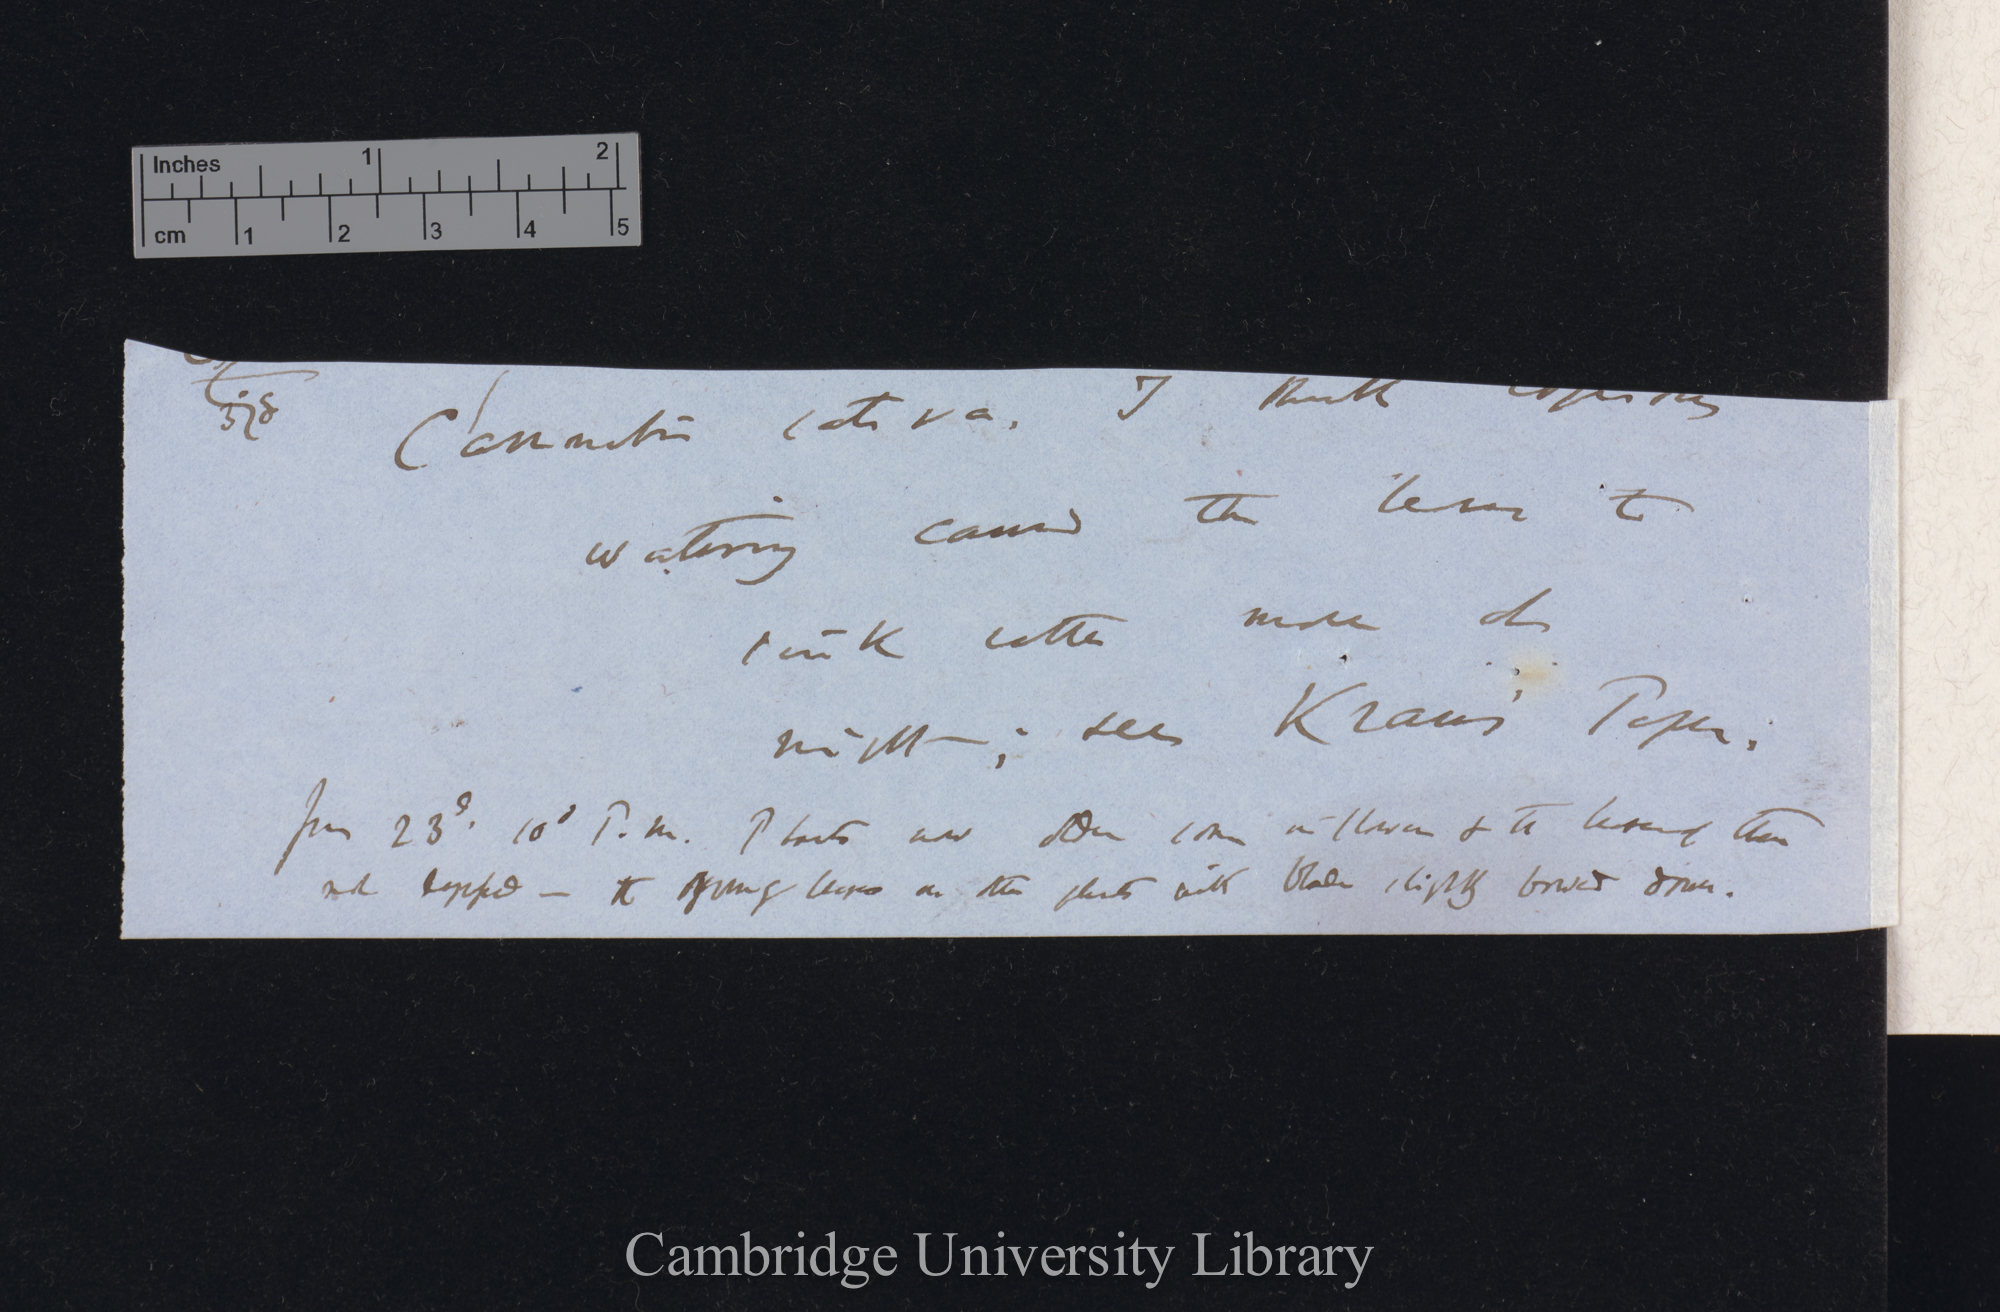 Inches 1 2
cm 1 2 3 4 5
Cannabis sativa. I think copious
watering caused the leaves to
sink rather more at
night; see Kraus' Paper.
June 23d. 10° P.m. Plants now older some in flower & the leaves of them
not depressed — the young leaves on other plants with blades slightly bowed down.
Cambridge University Library